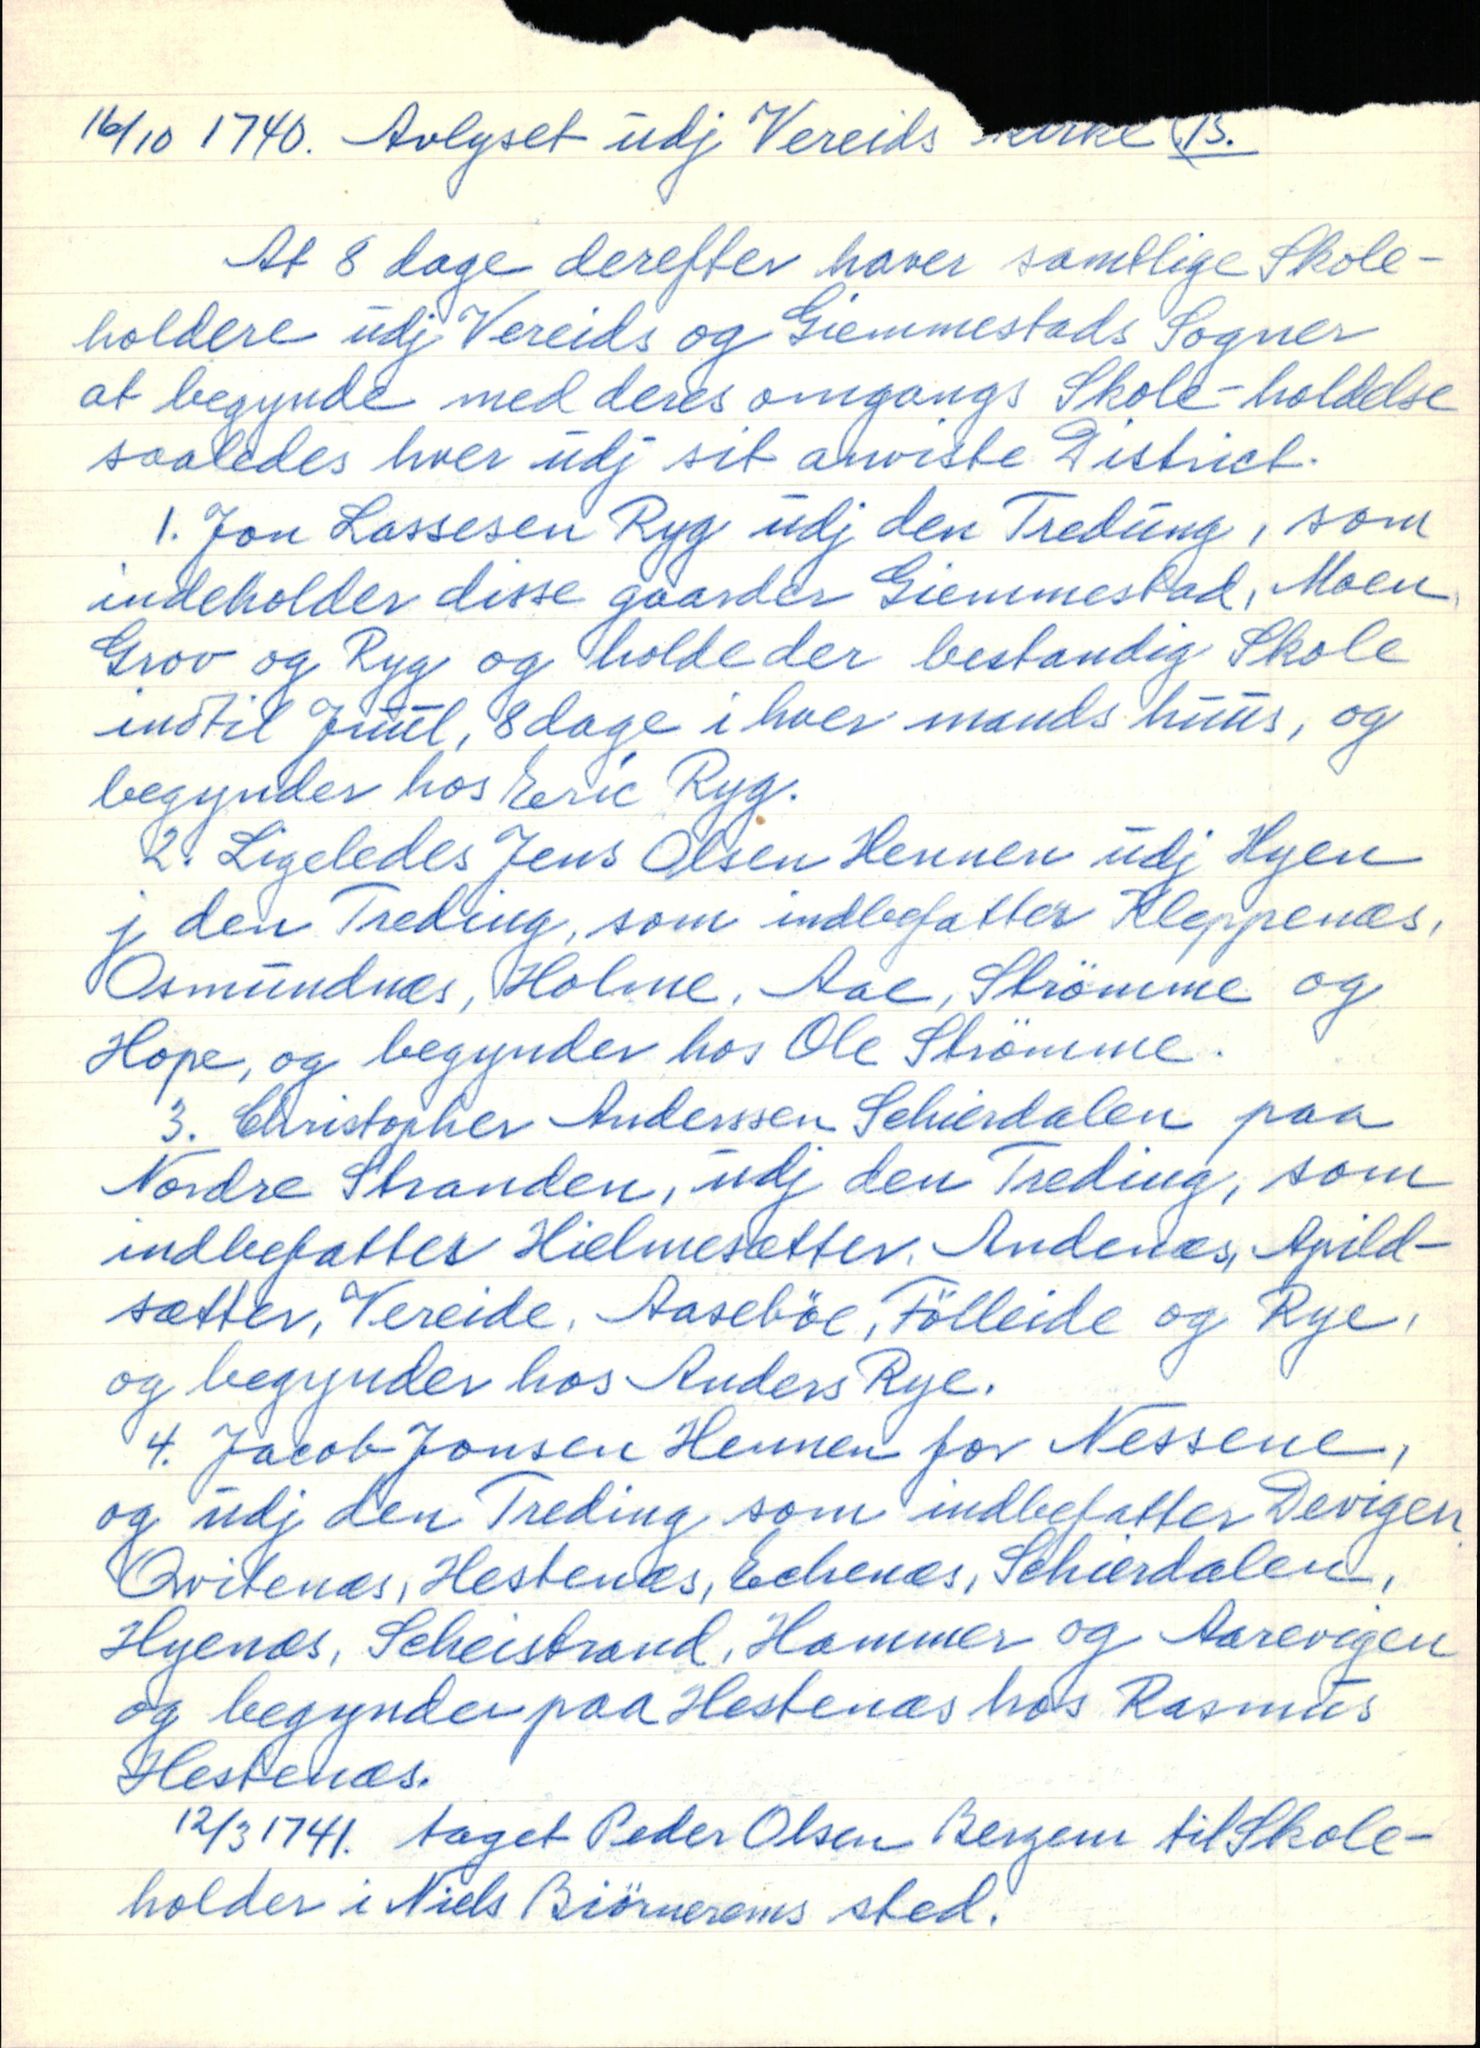 16/10 1740. Avlyset udj Vereids kirke 13.
At 8 dage derefter haver samtlige Skole-
holdere udj Vereids og Giemmestads Sogner
at begynde med deres omgangs Skole-holdelse
saaledes hver udj sit anviste District.
1. Jon Lassesen Ryg udj den Treding, som
indeholder disse gaarder Giemmestad, Moen,
Grov og Ryg og holde der bestandig Skole
indtil Juul, 8 dage i hver mands huus, og
begynder hos Eric Ryg.
2. Ligeledes Jens Olsen Hennen udj Hyen
j den Treding, som indbefatter Kleppenæs,
Osmundnæs, Holme, Aae, Strömme og
Hope, og begynder hos Ole Strömme.
3. Christopher Anderssen Schierdalen paa
Nordre Stranden, udj den Treding, som
indbefatter Hielmesætter, Andenæs, Apild-
sætter, Vereide, Aaseböe, Fölleide og Rye,
og begynder hos Anders Rye.
4. Jacob Jonsen Hennen for Nessene,
og udj den Treding som indbefatter Devigen,
Qvitenæs, Hestenæs, Echenæs, Schierdalen,
Hyenæs, Scheistrand, Hammer og Aarevigen
og begynder paa Hestenæs hos Rasmus
Hestenæs.
12/3 1741. taget Peder Olsen Bergem til Skole-
holder i Niels Biörnerems sted.